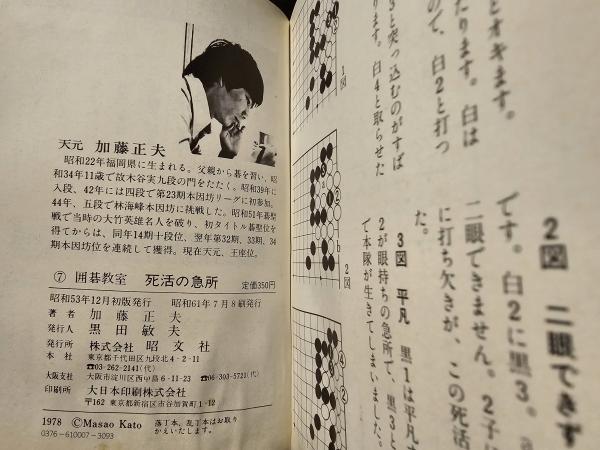 天元 加藤正夫
昭和22年福岡県に生まれる。父親から碁を習い、昭
和34年11歳で故木谷実九段の門をたたく。昭和39年に
入段、42年には四段で第23期本因坊リーグに初参加。
44年、五段で林海峰本因坊に挑戦した。昭和51年碁聖
戦で当時の大竹英雄名人を破り、初タイトル碁聖位を
得てからは、同年14期十段位、翌年第32期、33期、34
期本因坊位を連続して獲得。現在天元、王座位。
⑦ 囲碁教室 死活の急所 定価350円
昭和53年12月初版発行 昭和61年7月8刷発行
著者 加藤正夫
発行人 黒田敏夫
発行所 株式会社 昭文社
本社 東京都千代田区九段北4-2-11
☎03-262-2141(代)
大阪支店 大阪市淀川区西中島6-11-23 ☎06-303-5721(代)
印刷所 大日本印刷株式会社
〒162 東京都新宿区市谷加賀町
1978 ©Masao Kato 落丁本、乱丁本はお取り
かえいたします。
0376-610007-3093
とオキます。
たります。白は
ので、白2と打つ
3と突っ込むのがすば
ります。白4と取らせた
1図
2図 二眼できず
です。白2に黒3。
二眼できません。2子に
に打ち欠きが、この死活
た。
3図 平凡 黒1は平凡
2が眼持ちの急所で、黒3と
で本隊が生きてしまいました。
2図